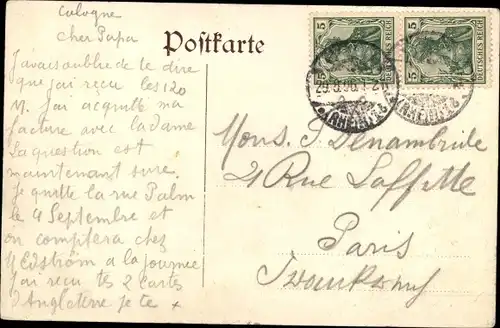 Cologne
cher Papa
Postkarte
J'avais oublié de te dire
que j'ai reçu les 120
M. J'ai acquitté ma
facture avec la dame
La question est
maintenant sure.
Je quitte la rue Palm
le 4 Septembre et
on comptera chez
à la journée
j'ai reçu tes 2 cartes
d'Angleterre je te x
5 5
DEUTSCHES REICH
Mons. J. Denambride
21 Rue Laffitte
Paris